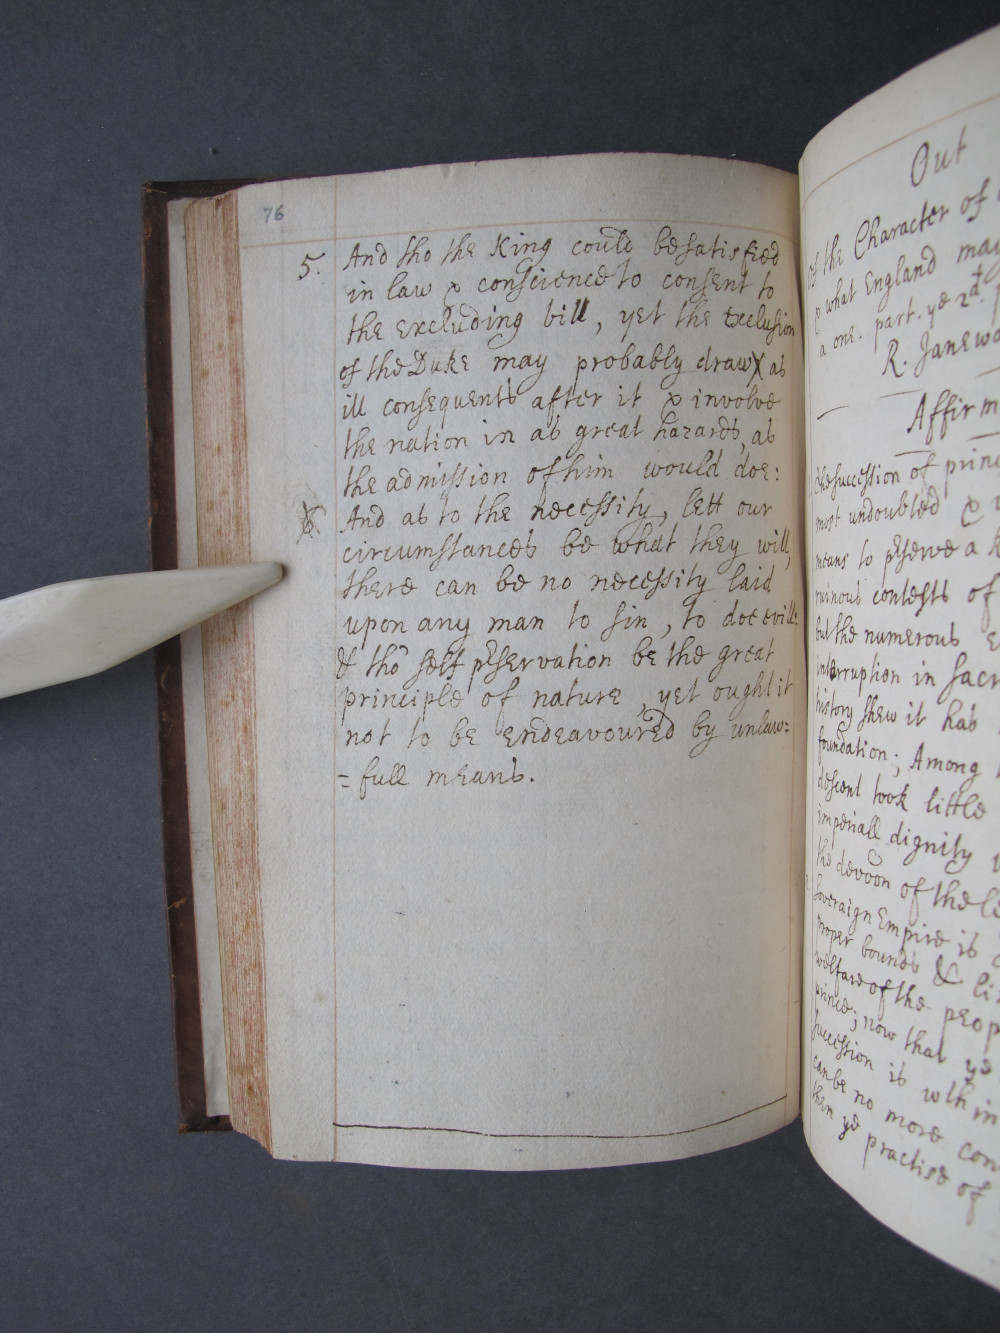 76
5. And tho the King could be satisfied
in law & conscience to consent to
the excluding bill, yet the exclusion
of the Duke may probably draw as
ill consequents after it & involve
the nation in as great hazards, as
the admission of him would doe:
6. And as to the necessity, lett our
circumstances be what they will,
there can be no necessity laid
upon any man to sin, to doe evill:
& tho self pservation be the great
principle of nature, yet ought it
not to be endeavoured by unlaw=
=full means.
Out
of the Character of
& what England may
a one. part. ye 2d.
R. Janewa
Affirm
The succession of princ
most undoubted &
means to pserve a K
ruinous contests of
but the numerous E
interruption in sacr
history shew it has
foundation; Among
descent took little
imperiall dignity
the devoon of the
Soveraign Empire is
proper bounds & li
welfare of the peop
prince; now that ye
succession is wth in
can be no more con
then ye practise of